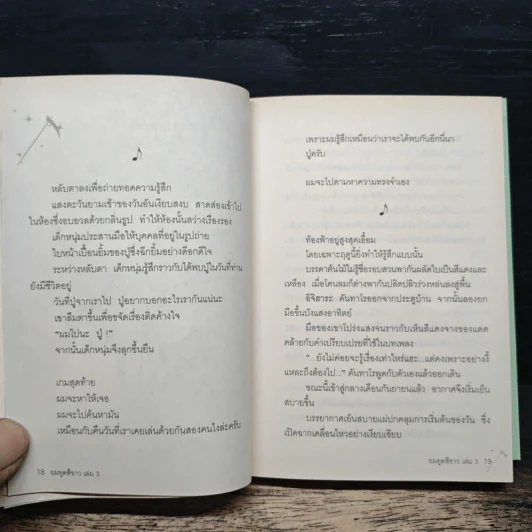 หลับตาลงเพื่อถ่ายทอดความรู้สึก
แสงตะวันยามเช้าของวันอันเงียบสงบ สาดส่องเข้าไป
ในห้องซึ่งอบอวลด้วยกลิ่นธูป ทำให้ห้องนั้นสว่างเรืองรอง
เด็กหนุ่มประสานมือให้บุคคลที่อยู่ในรูปถ่าย
ใบหน้าเปื้อนยิ้มของปู่ซึ่งฉีกยิ้มอย่างดีอกดีใจ
ระหว่างหลับตา เด็กหนุ่มรู้สึกราวกับได้พบปู่ในวันที่ท่าน
ยังมีชีวิตอยู่
วันที่ปู่จากเราไป ปู่อยากบอกอะไรเรากันแน่นะ
เขาลืมตาขึ้นเพื่อขจัดเรื่องติดค้างใจ
"ผมไปนะ ปู่ !"
จากนั้นเด็กหนุ่มจึงลุกขึ้นยืน
เกมสุดท้าย
ผมจะหาให้เจอ
ผมจะไปค้นหามัน
เหมือนกับคืนวันที่เราเคยเล่นด้วยกันสองคนไงล่ะครับ
18 ยมทูตสีขาว เล่ม 3
เพราะผมรู้สึกเหมือนว่าเราจะได้พบกันอีกนี่นา
ปู่ครับ
ผมจะไปตามหาความทรงจำเอง
ท้องฟ้าอยู่สูงสุดเอื้อม
โดยเฉพาะฤดูนี้ยิ่งทำให้รู้สึกแบบนั้น
บรรดาต้นไม้ไม่รู้ชื่อรอบสวนพากันผลัดใบเป็นสีแดงและ
เหลือง เมื่อโดนลมก็ต่างพากันปลิดปลิวร่วงหล่นลงสู่พื้น
อิจิฮาระ คันทาโรออกจากประตูบ้าน จากนั้นลองยก
มือขึ้นบังแสงอาทิตย์
มือของเขาโปร่งแสงจนราวกับเห็นสีแดงจางของแดด
คล้ายกับคำเปรียบเปรยที่ใช้ในบทเพลง
"...ยังไม่ค่อยจะรู้เรื่องเท่าไหร่แฮะ...แต่คงเพราะอย่างงี้
แหละถึงต้องไป..." คันทาโรพูดกับตัวเองแล้วออกเดิน
ขณะนี้เข้าสู่กลางเดือนกันยายนแล้ว อากาศจึงเริ่มเย็น
สบายขึ้น
บรรยากาศเย็นสบายแผ่ปกคลุมการเริ่มต้นของวัน ซึ่ง
เปิดฉากเคลื่อนไหวอย่างเงียบเชียบ
ยมทูตสีขาว เล่ม 3 19